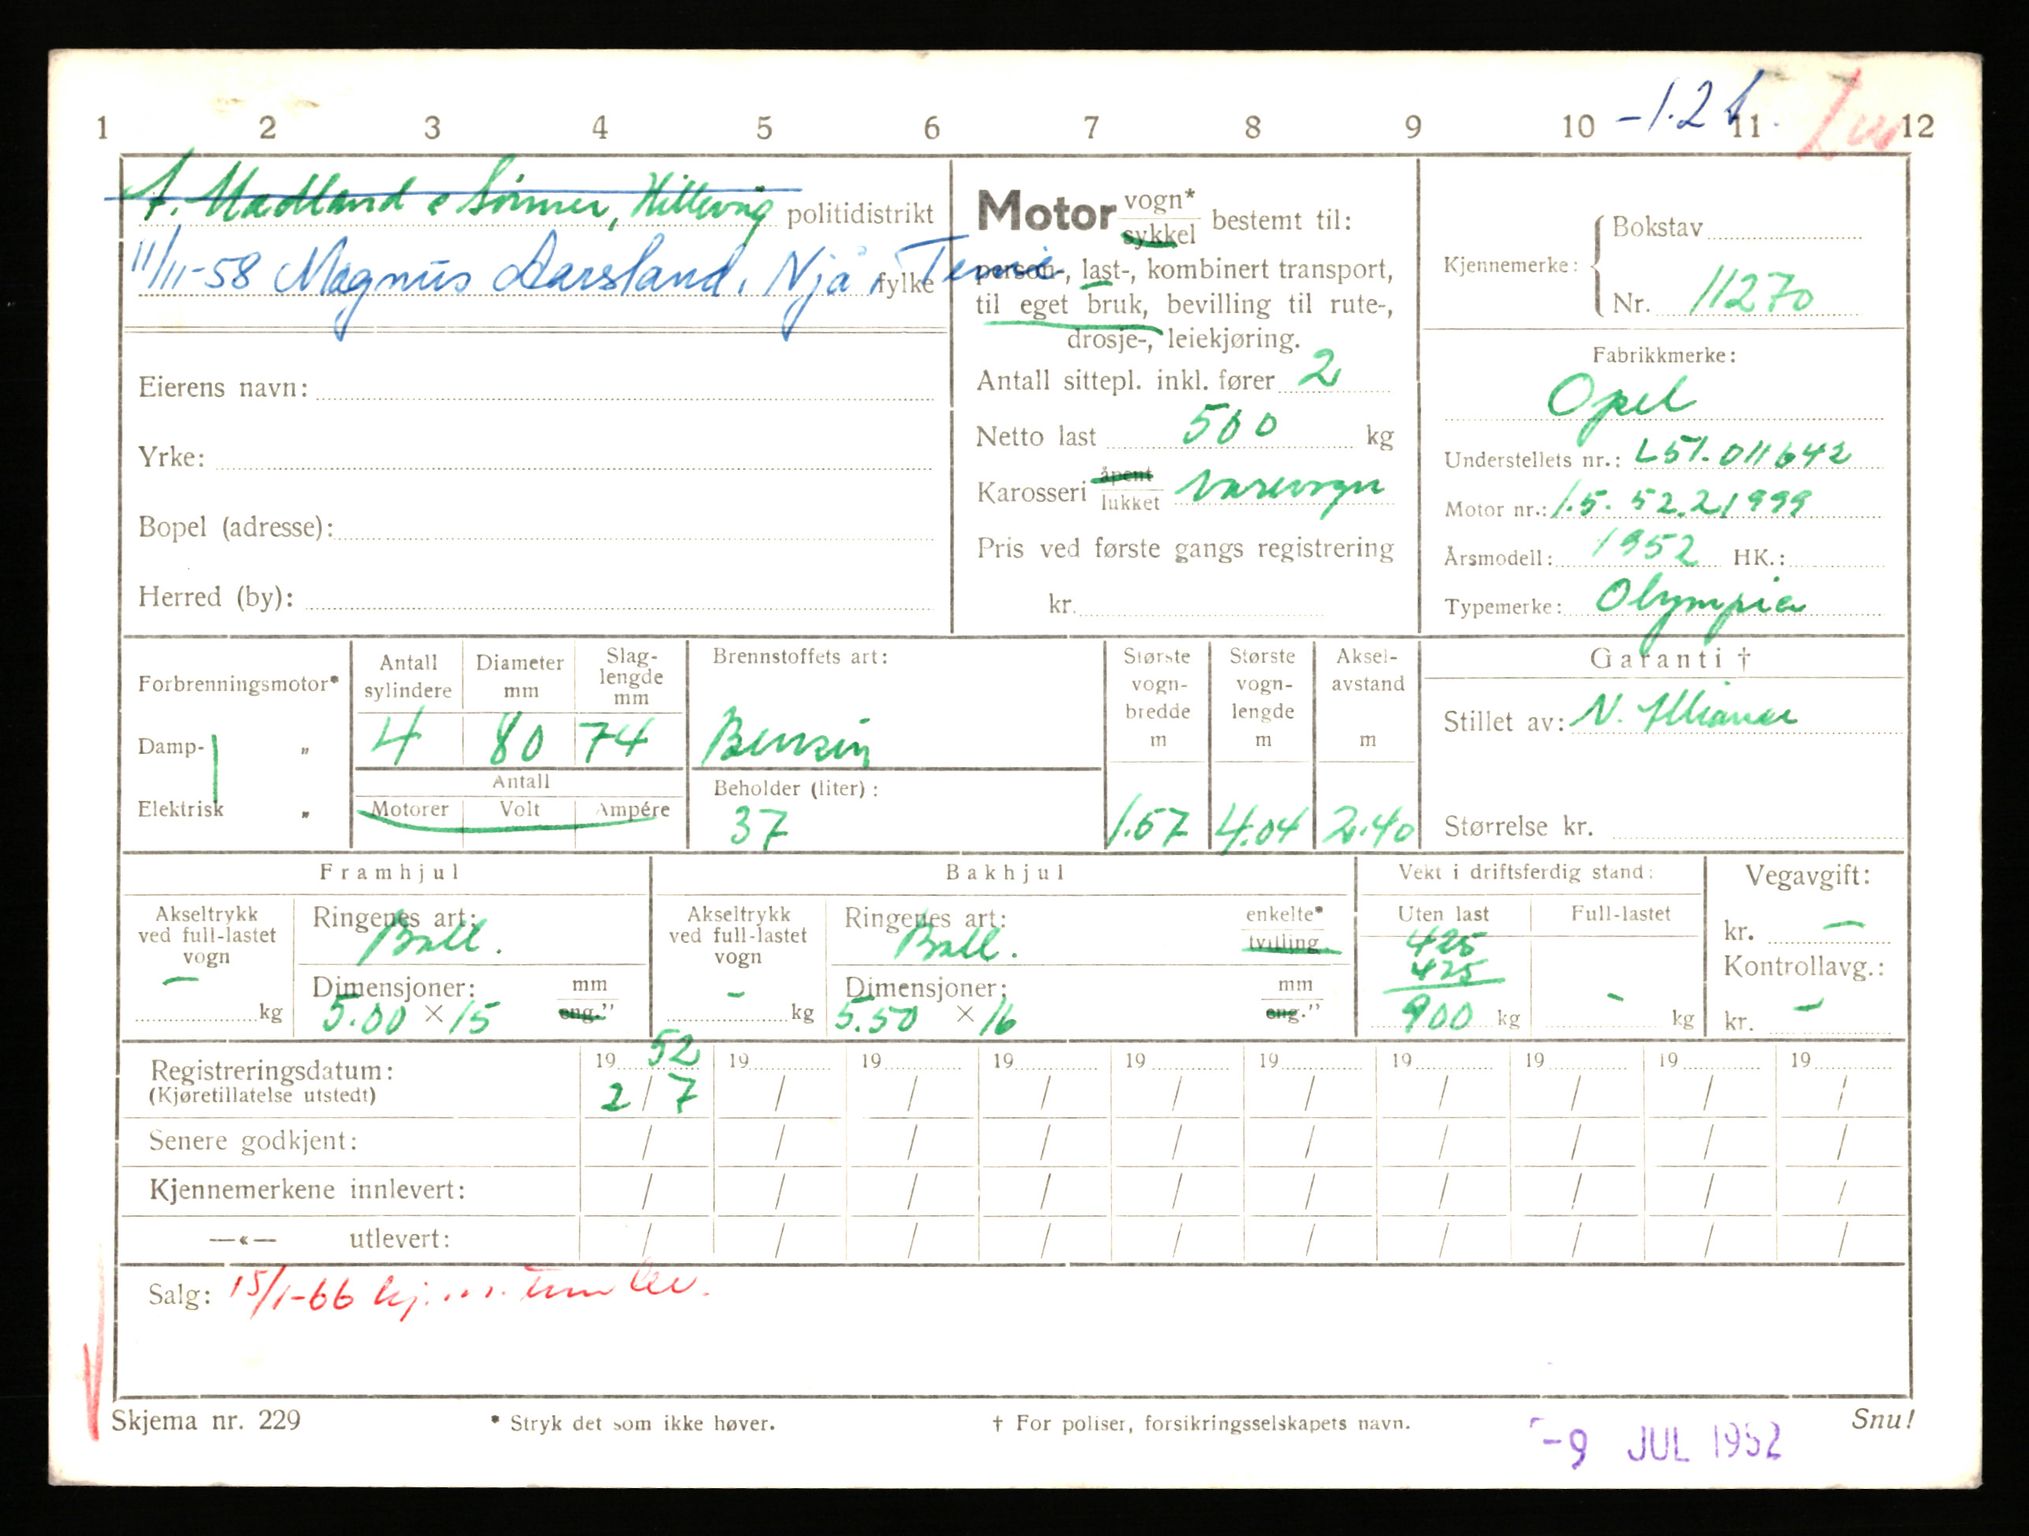 -1.2
1 2 3 4 5 6 7 8 9 10 11 12
A. Madland & Sønner, Hillevåg politidistrikt
11/11-58 Magnus Aarsland, Njå, Time fylke
Eierens navn:
Yrke:
Bopel (adresse):
Herred (by):
Motor vogn* sykkel bestemt til:
person-, last-, kombinert transport,
til eget bruk, bevilling til rute-,
drosje-, leiekjøring.
Antall sittepl. inkl. fører 2
Netto last 500 kg
Karosseri åpent lukket Varevogn
Pris ved første gangs registrering
kr.
Kjennemerke: Bokstav
Nr. 11270
Fabrikkmerke:
Opel
Understellets nr.: L51.011642
Motor nr.: 1.5. 52.21999
Årsmodell: 1952 HK.:
Typemerke: Olympia
Forbrenningsmotor*
Damp- „
Elektrisk „
Antall sylindere Diameter mm Slag-lengde mm
4 80 74
Antall
Motorer Volt Ampére
Brennstoffets art:
Bensin
Beholder (liter):
37
Største vogn-bredde m
1.57
Største vogn-lengde m
4.04
Aksel-avstand m
2.40
Garanti †
Stillet av: N.
Størrelse kr.
Framhjul
Akseltrykk ved full-lastet vogn
- kg
Ringenes art: Ball.
Dimensjoner: mm eng."
5.00 × 15
Bakhjul
Akseltrykk ved full-lastet vogn
- kg
Ringenes art: Ball. enkelte* tvilling
Dimensjoner: mm eng."
5.50 × 16
Vekt i driftsferdig stand:
Uten last Full-lastet
425
425
900 kg - kg
Vegavgift:
kr. -
Kontrollavg.:
kr. -
Registreringsdatum: 19 52 19 19 19 19 19 19 19 19 19
(Kjøretillatelse utstedt) 2/7 / / / / / / / / /
Senere godkjent: / / / / / / / / / /
Kjennemerkene innlevert: / / / / / / / / / /
—«— utlevert: / / / / / / / / / /
Salg: 15/1-66 kj.
Skjema nr. 229 * Stryk det som ikke høver. † For poliser, forsikringsselskapets navn. Snu!
-9 JUL 1952